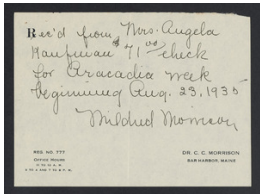 Rec'd from Mrs. Angela
Kaufman $71 00 check
for Aracadia week
beginning Aug. 23, 1935
Mildred Morrison
REG. NO. 777
OFFICE HOURS
DR. C. C. MORRISON
BAR HARBOR, MAINE